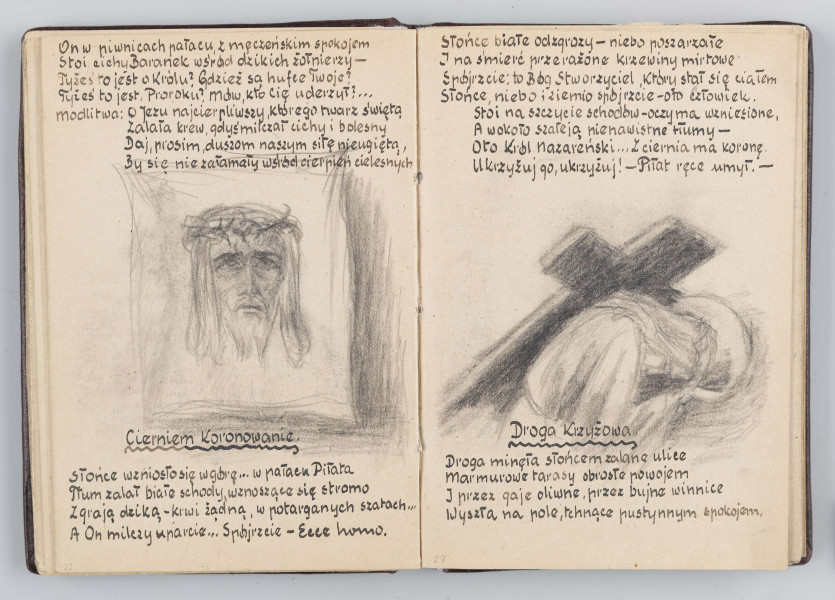 On w piwnicach pałacu, z męczeńskim spokojem
Stoi cichy Baranek wśród dzikich żołnierzy —
Tyżeś to jest o Królu? Gdzież są hufce Twoje?
Tyżeś to jest, Proroku? Mów, kto Cię uderzył?...
Modlitwa: O Jezu najcierpliwszy, którego twarz świętą
Zalała krew, gdyś milczał cichy i bolesny
Daj, prosim, duszom naszym siłę nieugiętą,
By się nie załamały wśród cierpień cielesnych
Cierniem Koronowanie.
Słońce wzniosło się w górę... w pałacu Piłata
Tłum zalał białe schody, wznoszące się stromo
Zgrają dziką – krwi żądną, w potarganych szatach...
A On milczy uparcie... Spójrzcie – Ecce homo.
Słońce białe od zgrozy – niebo poszarzałe
I na śmierć przerażone krzewiny mirtowe
Spójrzcie; to Bóg Stworzyciel, który stał się ciałem
Słońce, niebo i ziemio spójrzcie – oto człowiek.
Stoi na szczycie schodów – oczyma wzniesione,
A wokoło szaleją nienawistne tłumy –
Oto Król Nazareński... Z ciernia ma koronę.
Ukrzyżuj go, ukrzyżuj! – Piłat ręce umył. –
Droga Krzyżowa
Droga minęła słońcem zalane ulice
Marmurowe tarasy obrosłe powojem
I przez gaje oliwne, przez bujne winnice
Wyszła na pole, tchnące pustynnym spokojem.
27